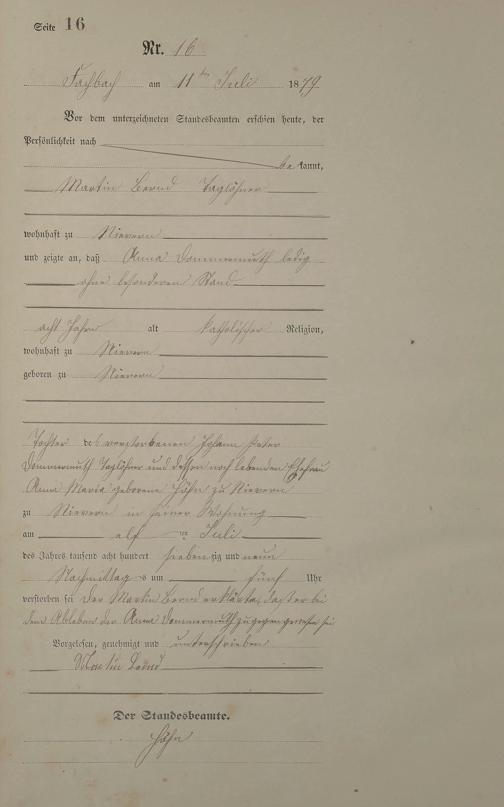 Seite 16
Nr. 16
Fachbach am 11ten Juli 1879
Vor dem unterzeichneten Standesbeamten erschien heute, der
Persönlichkeit nach
be kannt,
Martin Bernd Taglöhner
wohnhaft zu Nievern
und zeigte an, daß Anna Dommermuth ledig
ohne besonderen Stand
acht Jahre alt katholischer Religion,
wohnhaft zu Nievern
geboren zu Nievern
Tochter des verstorbenen Johann Peter
Dommermuth Taglöhner und dessen noch lebenden Ehefrau
Anna Maria geborene Hähn zu Nievern
zu Nievern in seiner Wohnung
am elf ten Juli
des Jahres tausend acht hundert siebenzig und neun
Nachmittag s um fünf Uhr
verstorben sei Der Martin Bernd erklärte, das er bei
dem Ableben der Anna Dommermuth zugegen gewesen sei
Vorgelesen, genehmigt und unterschrieben
Martin Bernd
Der Standesbeamte.
Hähn